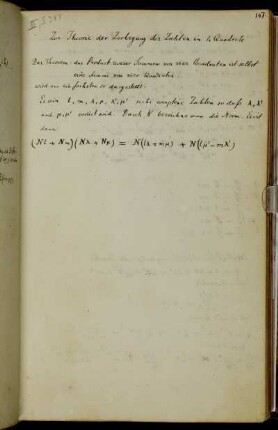 147
Zur Theorie der Zerlegung der Zahlen in 4 Quadrate
Das Theorem das Product zweier Summen von vier Quadraten ist selbst
eine Summe von vier Quadraten
wird am einfachsten so dargestellt:
Es sein l, m, λ, μ, λ', μ' sechs complexe Zahlen so daß λ, λ'
und μ, μ' conjugirt sind. Durch N bezeichne man die Norm. Es ist
dann
(Nl + Nm)(Nλ + Nμ) = N(lλ + mμ) + N(lμ' − mλ')